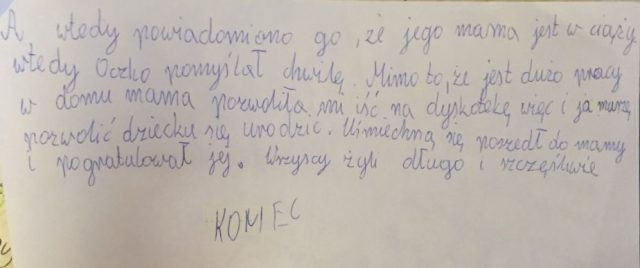 A wtedy powiadomiono go, że jego mama jest w ciąży
wtedy Oczko pomyślał chwilę. Mimo to, że jest dużo pracy
w domu mama pozwoliła mi iść na dyskotekę więc i ja muszę
pozwolić dziecku się urodzić. Uśmiechną się poszedł do mamy
i pogratulował jej. Wszyscy żyli długo i szczęśliwie
KONIEC